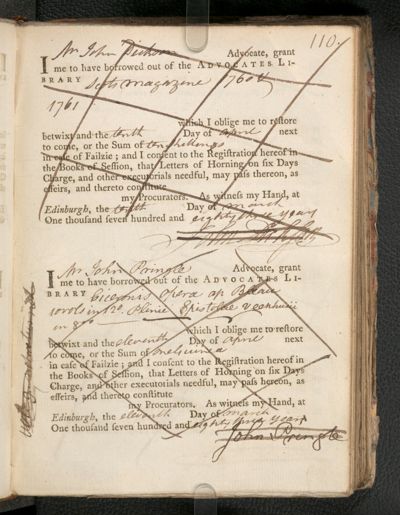 110.
I Mr John Dickson Advocate, grant
me to have borrowed out of the ADVOCATES LI-
BRARY Scots magazine 1760 &
1761
which I oblige me to reſtore
betwixt and the tenth Day of april next
to come, or the Sum of ten shillings
in caſe of Failzie; and I conſent to the Regiſtration hereof in
the Books of Seſſion, that Letters of Horning on ſix Days
Charge, and other executorials needful, may paſs thereon, as
effeirs, and thereto conſtitute
my Procurators. As witneſs my Hand, at
Edinburgh, the tenth Day of march
One thouſand ſeven hundred and eighty three years
I Mr John Pringle Advocate, grant
me to have borrowed out of the ADVOCATES LI-
BRARY Ciceronis opera ap Blaeu
in 12o. Plinii Epistolae
in 8vo which I oblige me to reſtore
betwixt and the eleventh Day of april next
to come, or the Sum of one guinea
in caſe of Failzie; and I conſent to the Regiſtration hereof in
the Books of Seſſion, that Letters of Horning on ſix Days
Charge, and other executorials needful, may paſs hereon, as
effeirs, and thereto conſtitute
my Procurators. As witneſs my Hand, at
Edinburgh, the eleventh Day of march
One thouſand ſeven hundred and eighty three years
John Pringle